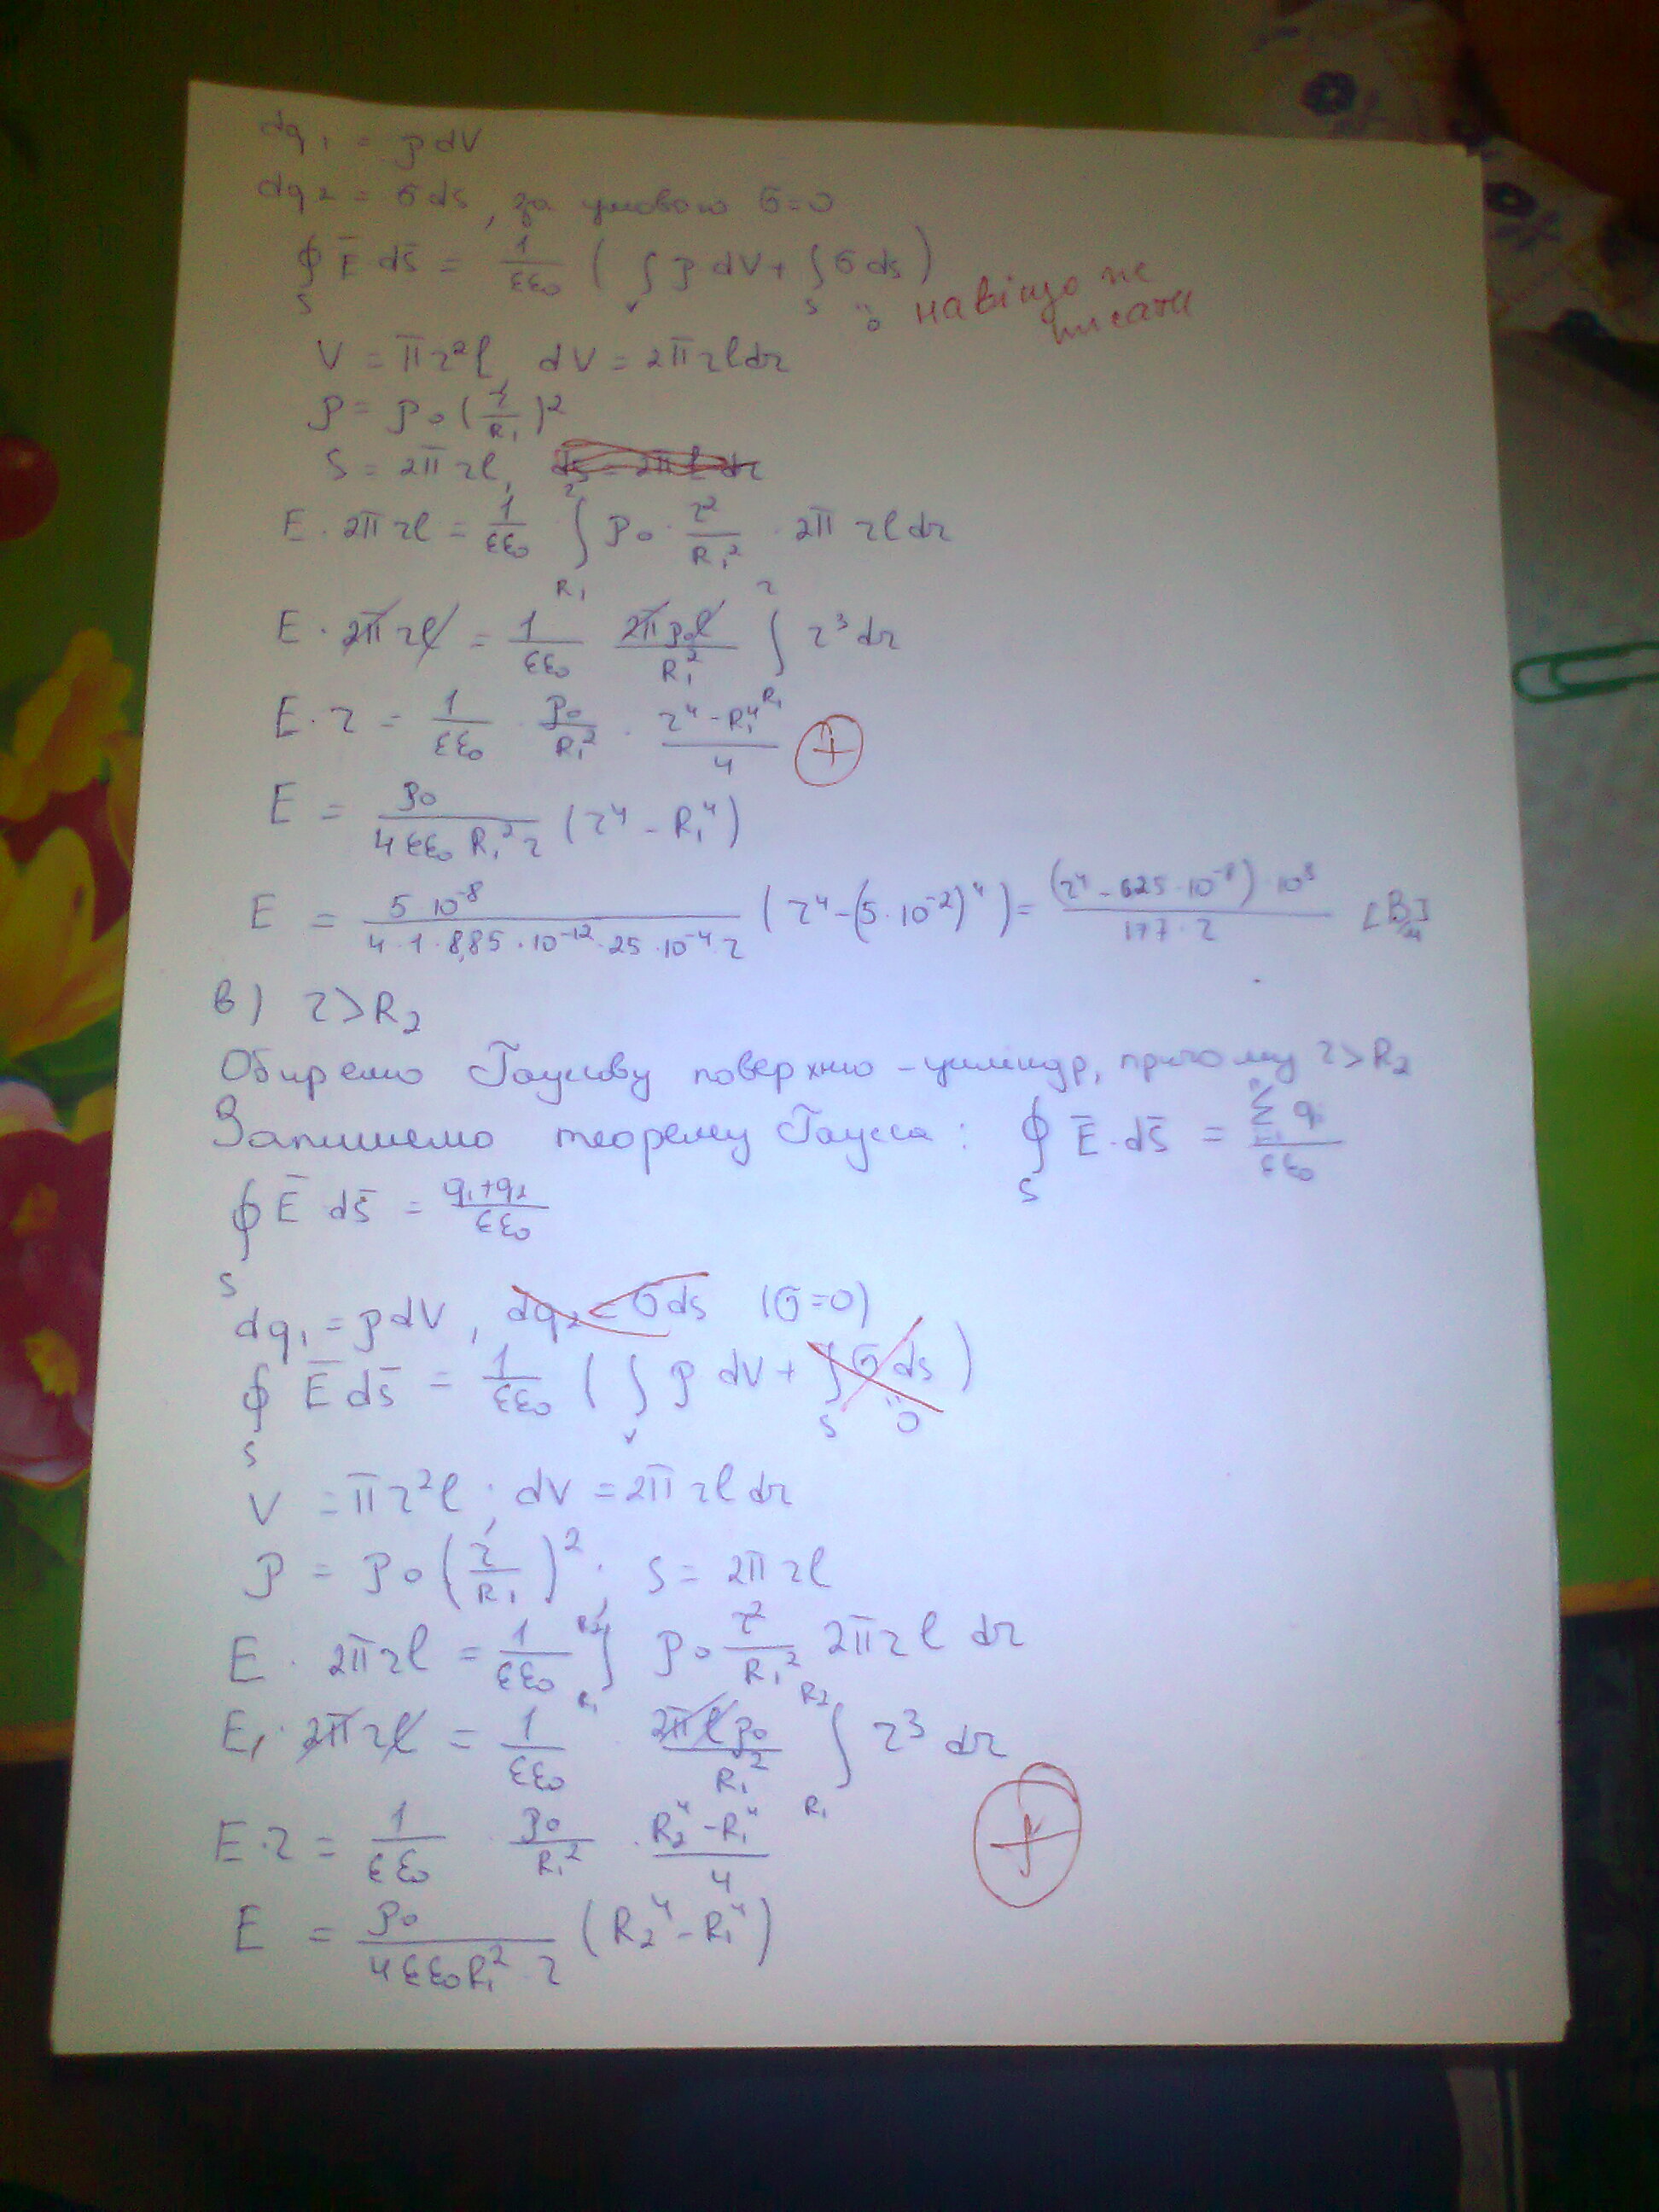 dq₁ = ρdV
dq₂ = σds, за умовою σ=0
∮_S Ē ds̄ = 1/(εε₀) ( ∫_V ρ dV + ∫_S σ ds ) " 0
V = πr²l, dV = 2πrldr
ρ = ρ₀(r/R₁)²
S = 2πrl, ds = 2πl dr
E · 2πrl = 1/(εε₀) ∫_{R₁}^{r} ρ₀ · r²/R₁² · 2πrldr
E · 2πrl = 1/(εε₀) 2πρ₀l/R₁² ∫_{R₁}^{r} r³dr
E · r = 1/(εε₀) · ρ₀/R₁² · (r⁴ - R₁⁴)/4 +
E = ρ₀/(4εε₀R₁²r) (r⁴ - R₁⁴)
E = 5·10⁻⁸/(4·1·8,85·10⁻¹²·25·10⁻⁴·r) (r⁴-(5·10⁻²)⁴) = (r⁴-625·10⁻⁸)·10⁸/(177·r) [В/м]
в) r>R₂
Обиремо Гаусову поверхню - циліндр, причому r>R₂
Запишемо теорему Гаусса: ∮_S Ē·ds̄ = Σq/(εε₀)
∮_S Ē ds̄ = (q₁+q₂)/(εε₀)
dq₁=ρdV, dq₂=σds (σ=0)
∮_S Ē ds̄ = 1/(εε₀) ( ∫_V ρ dV + ∫_S σ ds ) " 0
V = πr²l; dV = 2πrldr
ρ = ρ₀(r/R₁)²; S = 2πrl
E · 2πrl = 1/(εε₀) ∫_{R₁}^{R₂} ρ₀ r²/R₁² 2πrl dr
E₁ · 2πrl = 1/(εε₀) · 2πlρ₀/R₁² ∫_{R₁}^{R₂} r³ dr
E·r = 1/(εε₀) · ρ₀/R₁² · (R₂⁴-R₁⁴)/4 +
E = ρ₀/(4εε₀R₁²·r) (R₂⁴-R₁⁴)